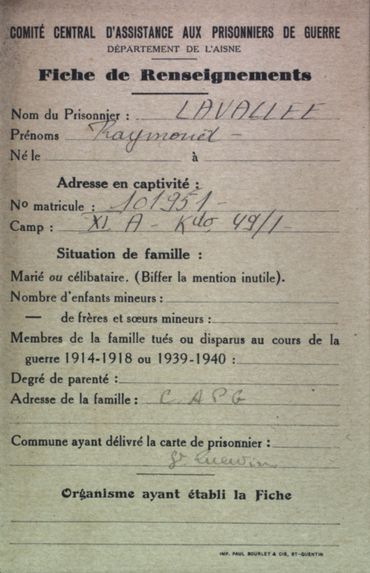 COMITÉ CENTRAL D'ASSISTANCE AUX PRISONNIERS DE GUERRE
DÉPARTEMENT DE L'AISNE
Fiche de Renseignements
Nom du Prisonnier : LAVALLEE
Prénoms Raymond -
Né le à
Adresse en captivité :
No matricule : 101951 -
Camp : XI A - Kdo 49/1 -
Situation de famille :
Marié ou célibataire. (Biffer la mention inutile).
Nombre d'enfants mineurs :
— de frères et sœurs mineurs :
Membres de la famille tués ou disparus au cours de la
guerre 1914-1918 ou 1939-1940 :
Degré de parenté :
Adresse de la famille : C A P G
Commune ayant délivré la carte de prisonnier :
St Quentin
Organisme ayant établi la Fiche
IMP. PAUL BOURLET & CIE, ST-QUENTIN